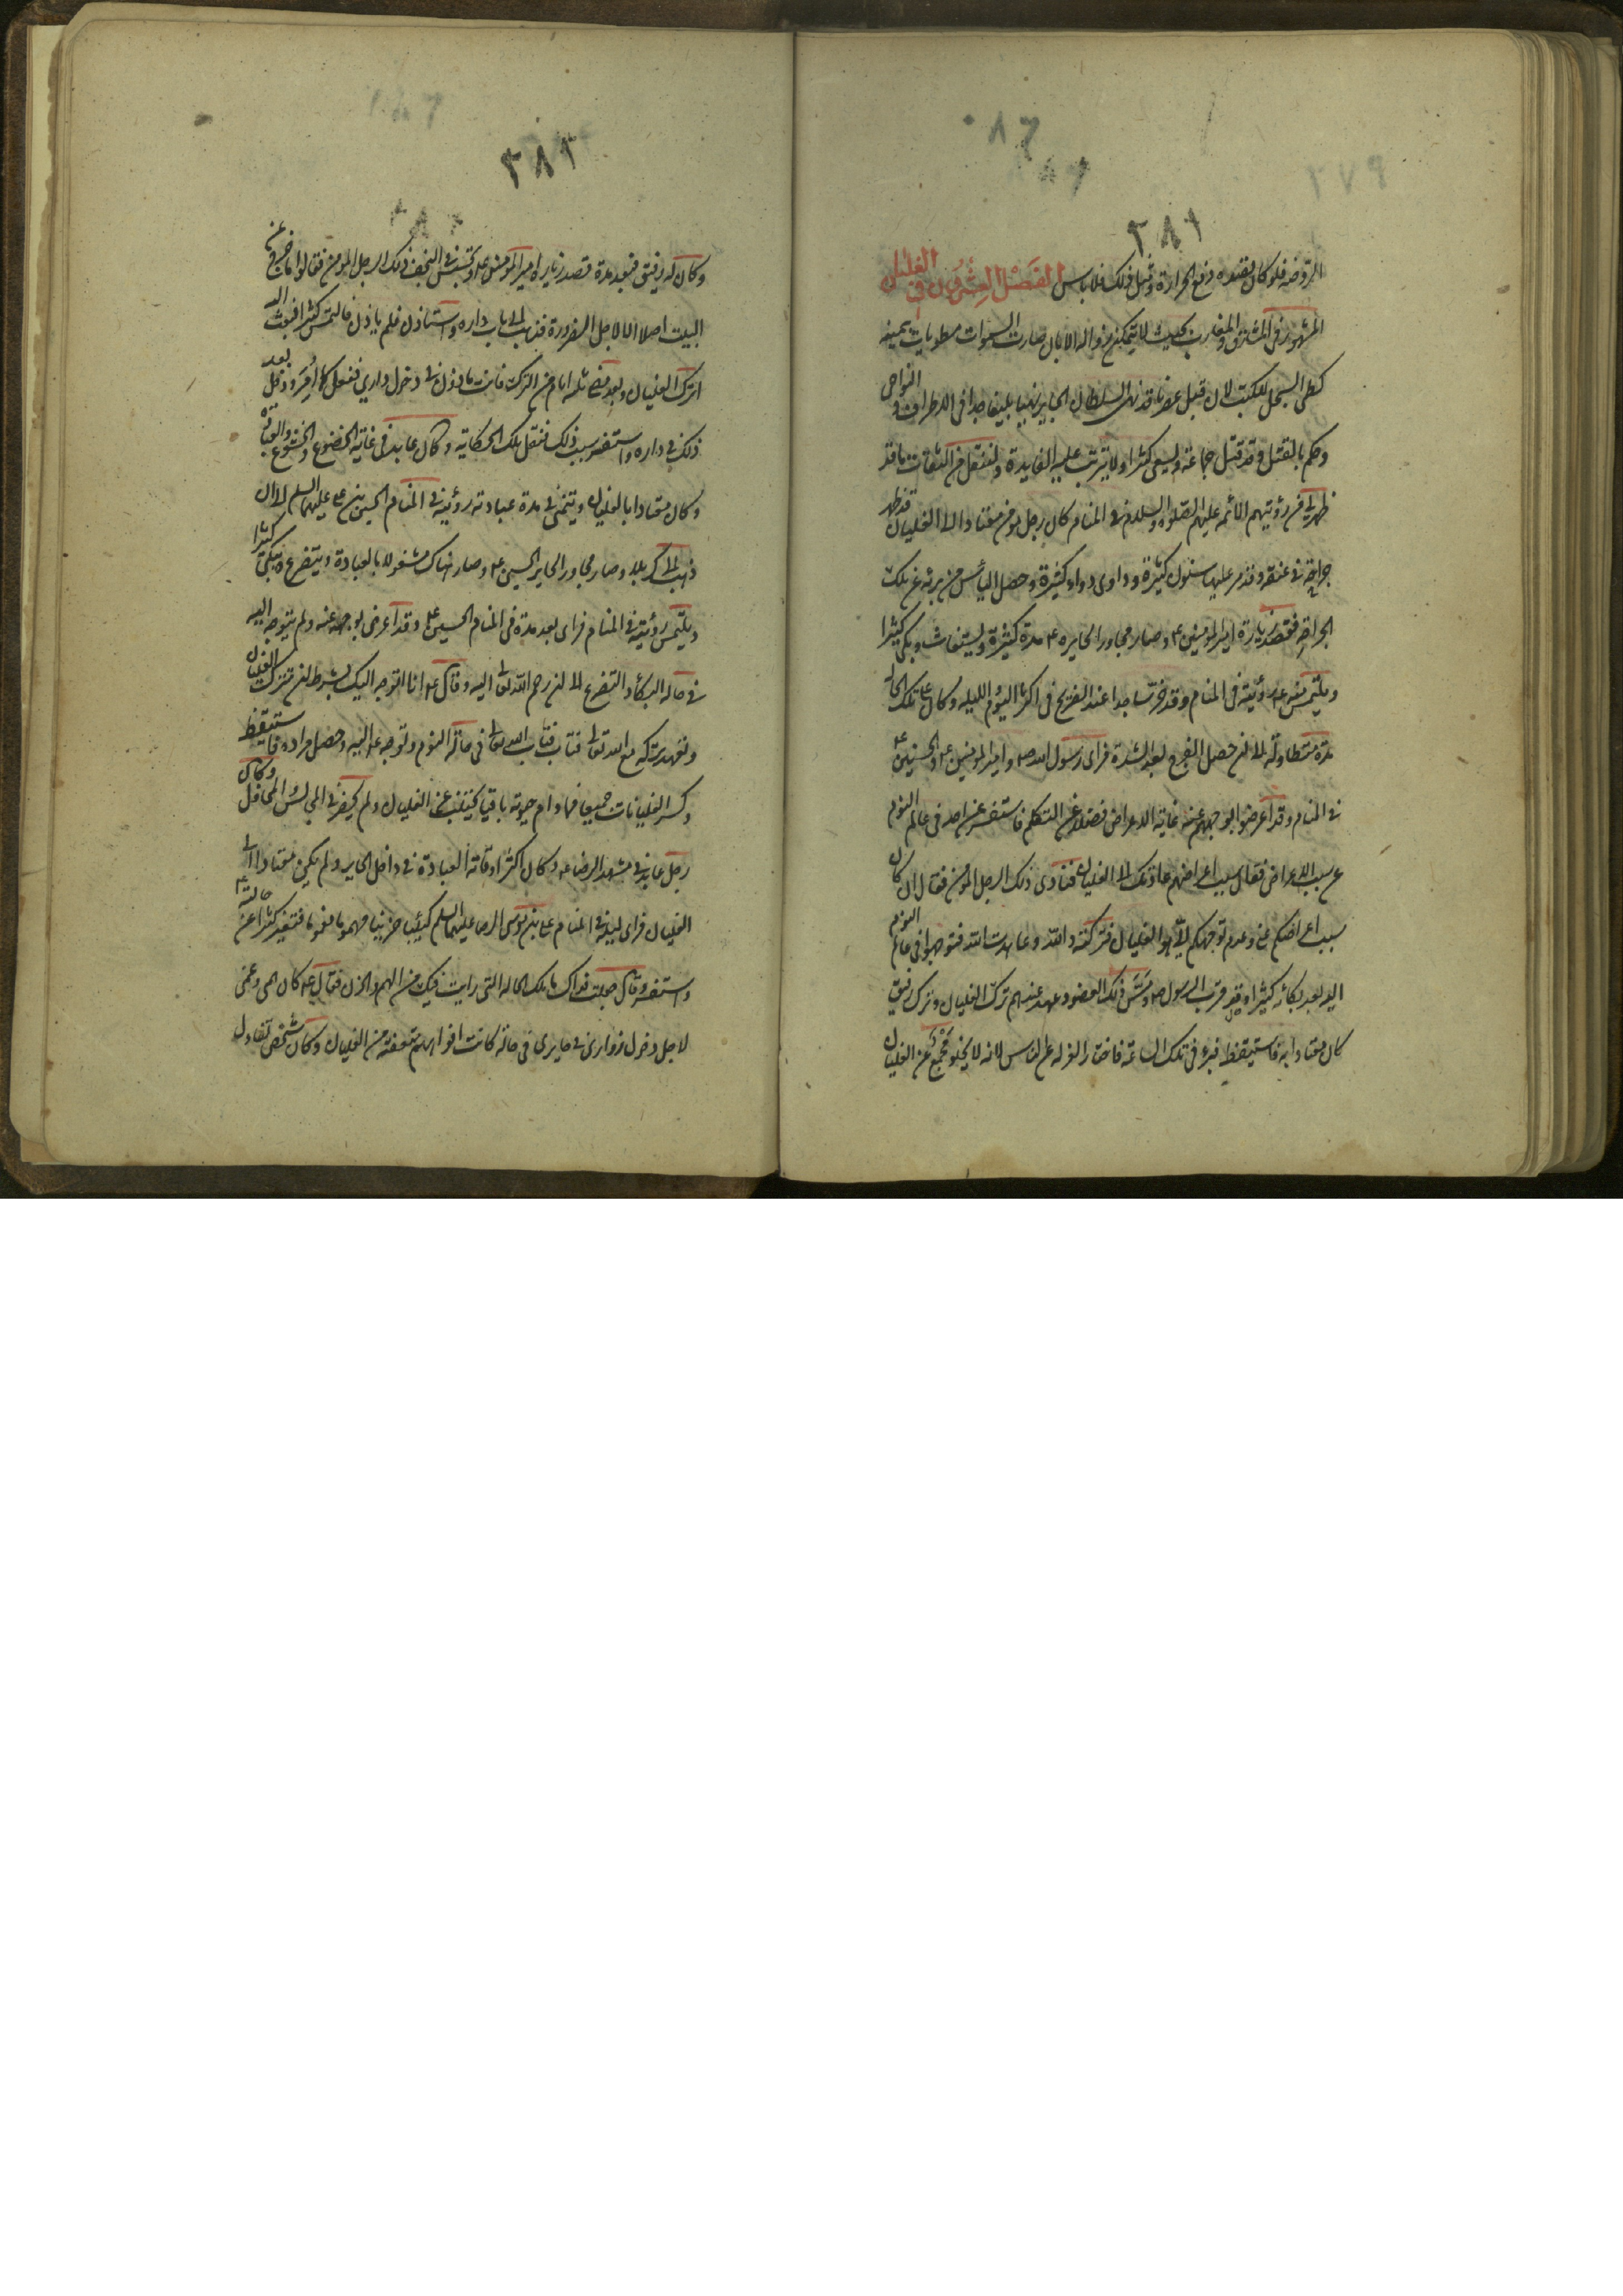 ٢٨١
الروضه فلو كان مقصوده دفع الحرارة وقبل ذلك فلا باس الفصل العشرون في الغليان
المشهور في المشرق والمغرب بحيث لا يتمكن زواله الا بان صارت السموات مطويات بيمينه
كطي السجل للكتب لان قبل عصرنا قد نهى السلطان الجابر نهيا بليغا جدا في الاطراف والنواحي
وحكم بالقتل وقد قتل جماعة وليسعى كثيرا ولا يترتب عليه الفايدة ولننقل من الثقات ما قد
ظهر لي من رؤيتهم الائمه عليهم الصلوه والسلام في المنام كان رجل مؤمن معتادا الى الغليان قد ظهر
جراحة في عنقه وقد مر عليها سنون كثيرة وداوى دواء كثيرة وحصل الياس من برئه عن تلك
الجراحة فقصد زيارة امير المؤمنين ع وصار مجاور الحايره ع مدة كثيرة ويستغاث ويبكي كثيرا
ويلتمس منه ع رؤيته في المنام وقد خر ساجدا عند الضريح في اكثر اليوم الليله وكان على تلك الحالة
مدة متطاولة الى ان حصل الفرج بعد الشدة فراى رسول الله ص وامير المؤمنين ع والحسنين ع
في المنام وقد اعرضوا بوجههم عنه غاية الاعراض فضلا عن التكلم فاستفسر عن احد في عالم النوم
عن سبب الاعراض فقال سبب اعراضهم عادتك الى الغليان فنادى ذلك الرجل المؤمن فقال ان كان
سبب اعراضكم عني وعدم توجهكم الي هو الغليان فتركته والله وعاهدت الله فتوجهوا في عالم النوم
اليه بعد بكائه كثيرا وقد قرب الرسول ص ومس ذلك العضو وعهد عندهم ترك الغليان وترك رفيق
كان معتادا به فاستيقظ فبرء في تلك الساعة فاختار العزله عن الناس لانه لا يخلو مجمع عن الغليان
٢٨٢
وكان له رفيق فبعد مدة قصد زيارة امير المؤمنين ع وتجسس في النجف ذلك الرجل المؤمن فقالوا ما خرج عن
البيت اصلا الا لاجل الضرورة فذهب الى باب داره واستاذن فلم ياذن فالتمس كثيرا فبعث اليه
اترك الغليان وبعد مضي ثلثه ايام من الترك فانت ماذون في دخول داري ففعل كما أمر ودخل بعد
ذلك في داره واستفسر سبب ذلك فنقل تلك الحكاية وكان عابد في غاية الخضوع والخشوع والعبادة
وكان معتادا بالغليان ويتمنى في مدة عبادته رؤيته في المنام الحسين بن علي عليهما السلم الى ان
ذهب الى كربلا وصار مجاور الحاير الحسين ع وصار هناك مشغولا بالعبادة ويتضرع ويبكي كثيرا
ويلتمس رؤيته في المنام فراى بعد مدة في المنام الحسين ع وقد اعرض بوجهه عنه ولم يتوجه اليه
في حاله البكاء والتضرع الى ان رحم الله تعالى اليه وقال ع انا اتوجه اليك بشرط ان تترك الغليان
وتعهد تركه مع الله تعالى فتاب فتاب الله تعالى في حالة النوم وتوجه ع اليه وحصل مراده فاستيقظ
وكسر الغليانات جميعا فما دام حيوته باقيا يجتنب عن الغليان ولم يحضر في المجالس والمحافل وكان
رجل عابد في مشهد الرضا ع وكان اكثر اوقاته العبادة في داخل الحاير ولم يكن معتادا الى
الغليان فراى ليلة في المنام علي بن موسى الرضا عليهما السلم كئيبا حزينا مهموما مغموما فتغير كثيرا عن حالته ع
واستفسر وقال جعلت فداك ما تلك الحالة التي رايت فيك من الهم والحزن فقال ع كان همي وغمي
لاجل دخول زواري في حايري في حالة كانت افواههم متعفنة من الغليان وكان شخص تفاءل